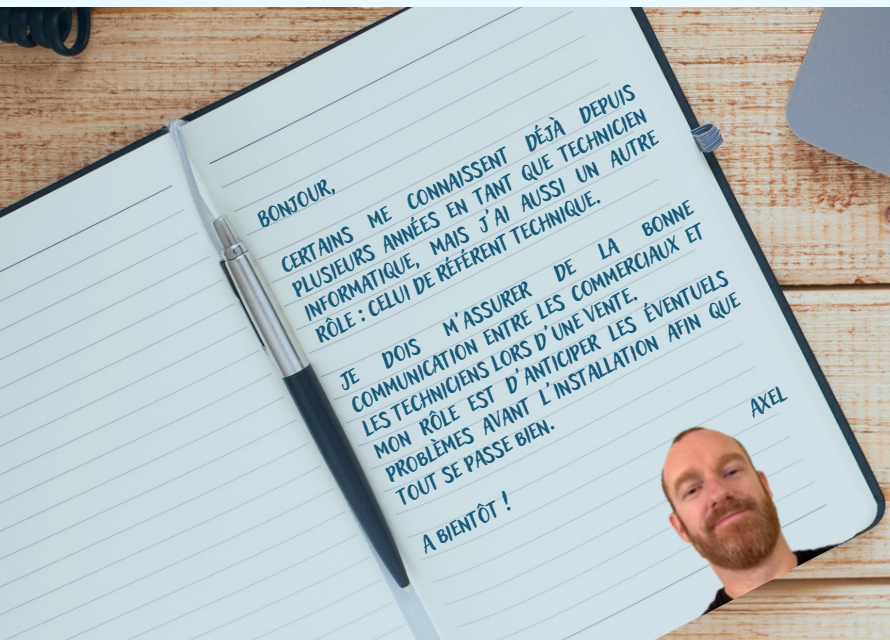 BONJOUR,
CERTAINS ME CONNAISSENT DÉJÀ DEPUIS
PLUSIEURS ANNÉES EN TANT QUE TECHNICIEN
INFORMATIQUE, MAIS J'AI AUSSI UN AUTRE
RÔLE : CELUI DE RÉFÉRENT TECHNIQUE.
JE DOIS M'ASSURER DE LA BONNE
COMMUNICATION ENTRE LES COMMERCIAUX ET
LES TECHNICIENS LORS D'UNE VENTE.
MON RÔLE EST D'ANTICIPER LES ÉVENTUELS
PROBLÈMES AVANT L'INSTALLATION AFIN QUE
TOUT SE PASSE BIEN.
A BIENTÔT !
AXEL